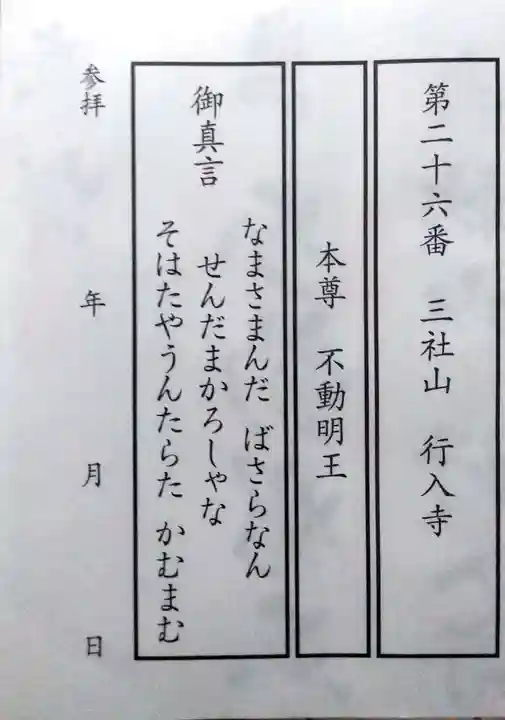 第二十六番 三社山 行入寺
本尊 不動明王
御真言
なまさまんだ ばさらなん
せんだまかろしやな
そはたやうんたらた かむまむ
参拝 年 月 日